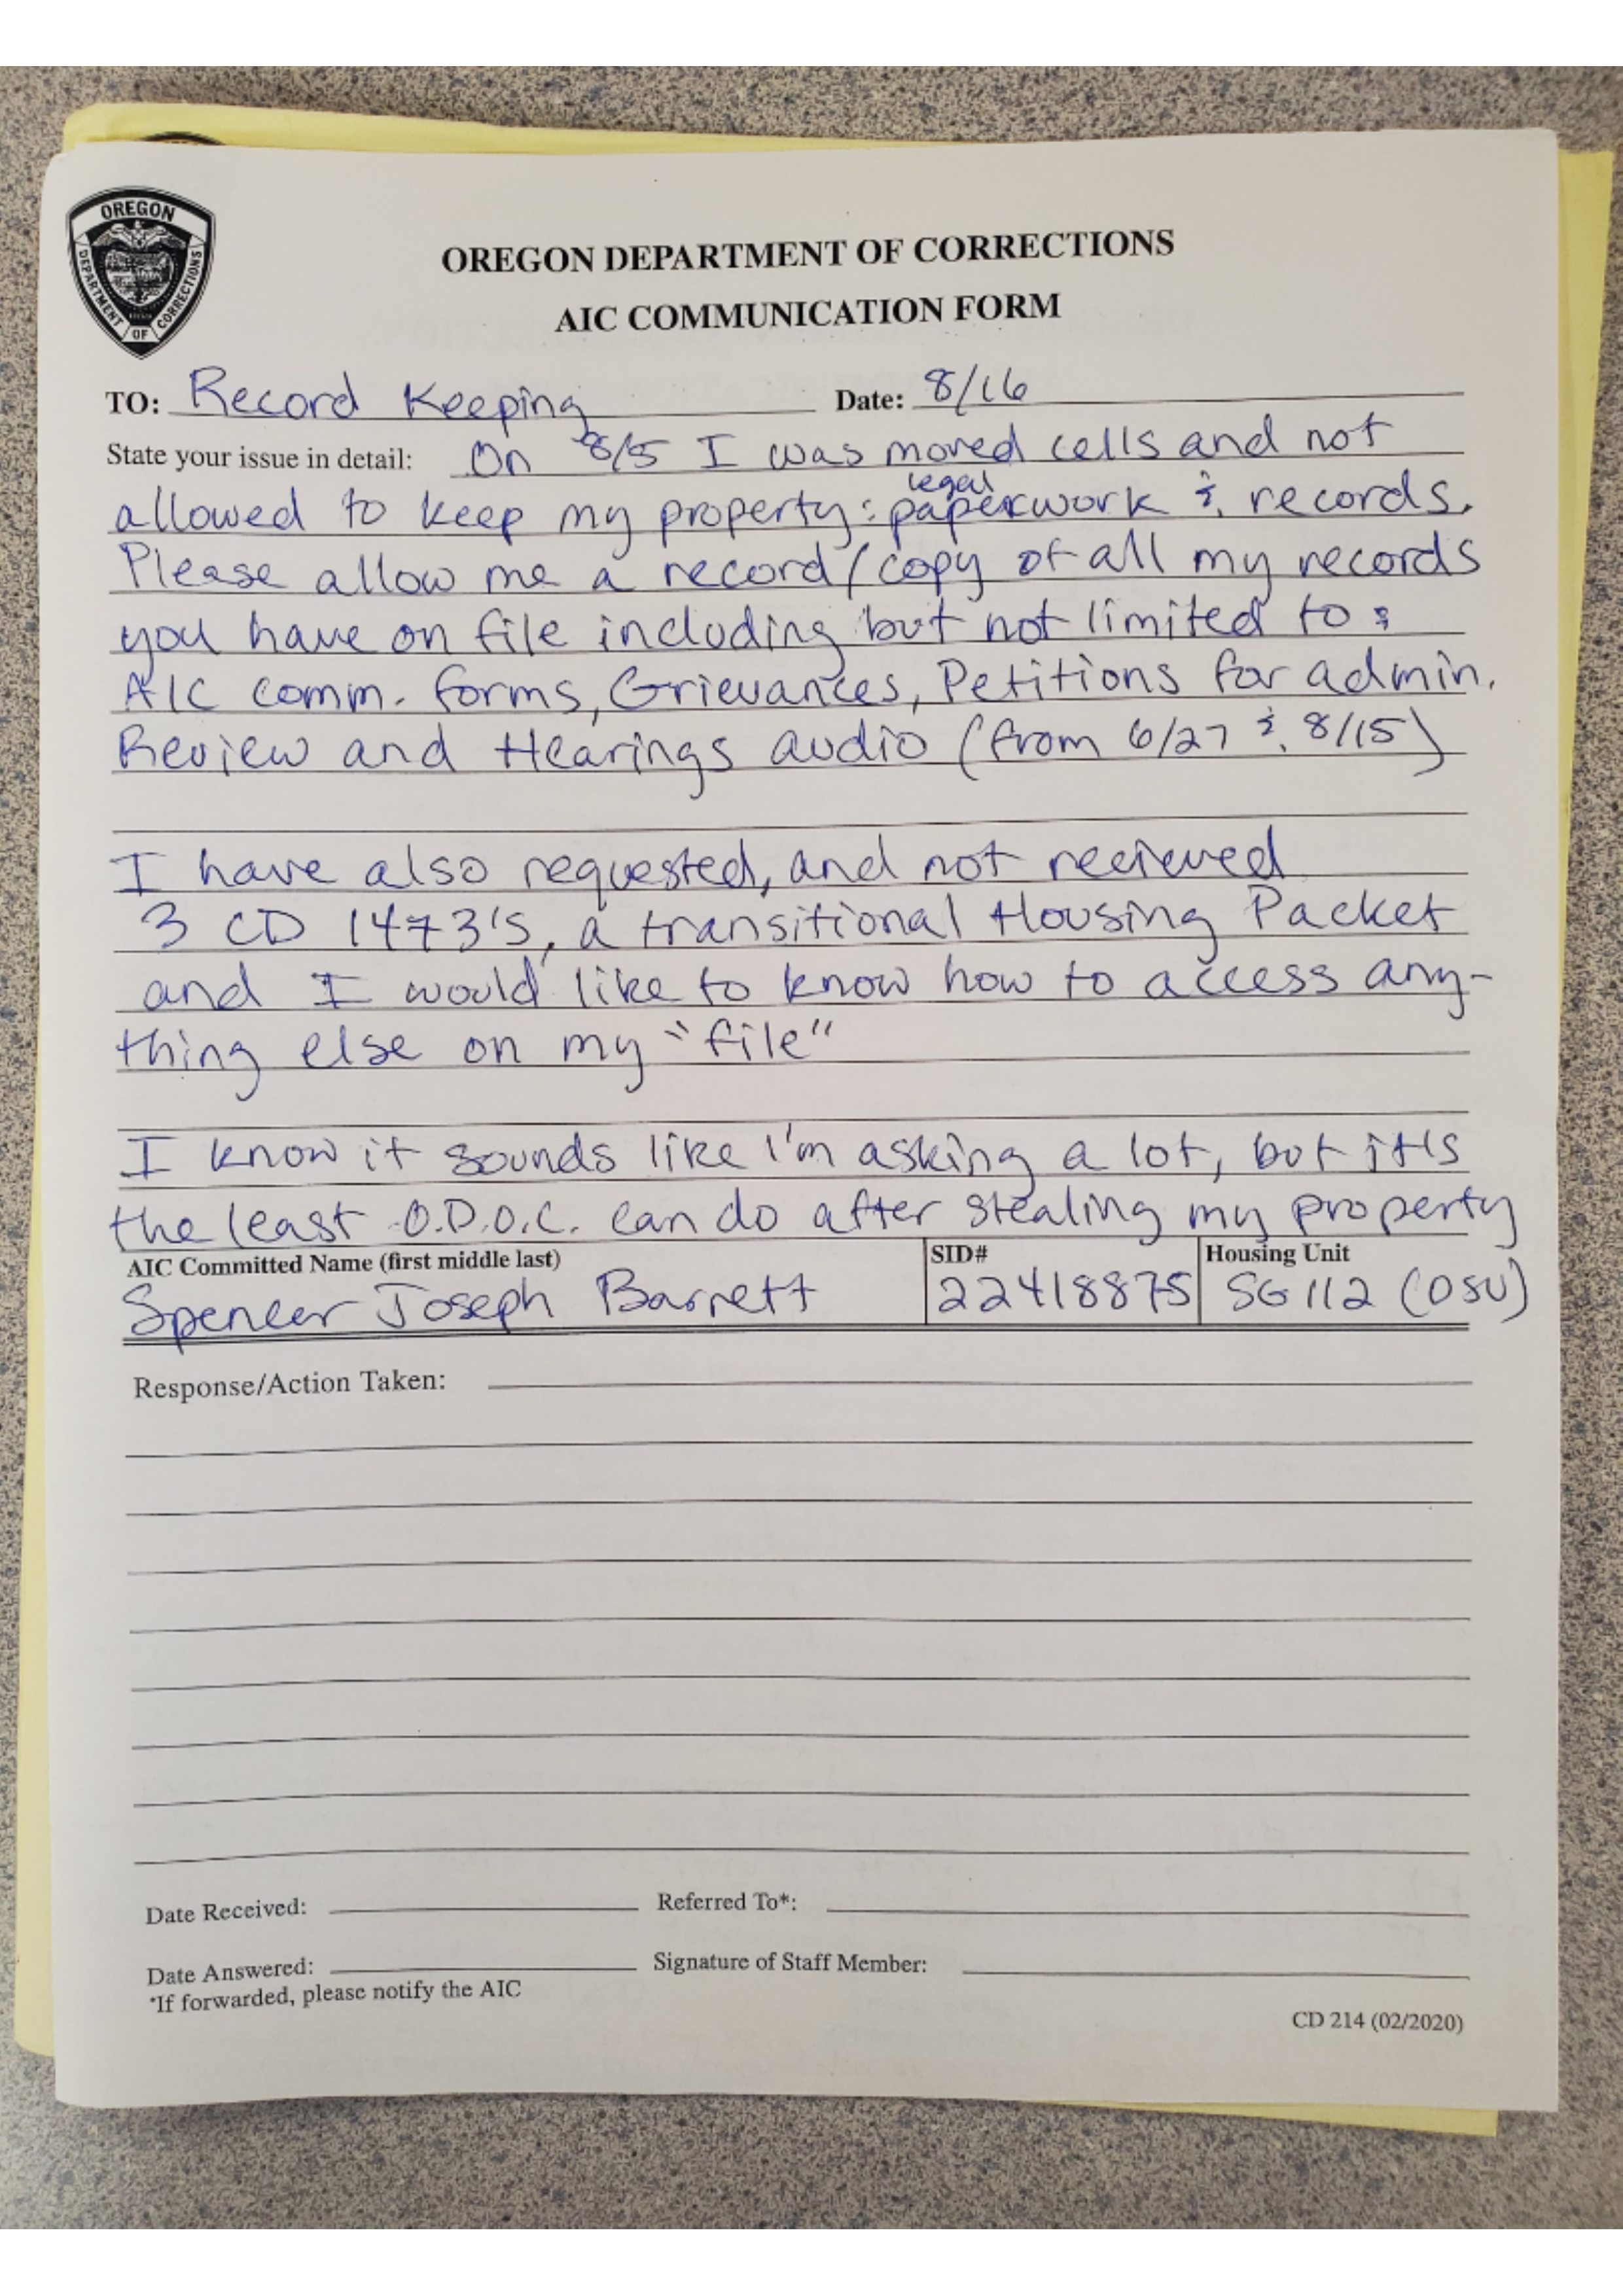 OREGON
DEPARTMENT OF CORRECTIONS
OREGON DEPARTMENT OF CORRECTIONS
AIC COMMUNICATION FORM
TO: Record Keeping Date: 8/16
State your issue in detail: On 8/5 I was moved cells and not
legal
allowed to keep my property: paperwork & records.
Please allow me a record/copy of all my records
you have on file including but not limited to:
AIC comm. forms, Grievances, Petitions for admin.
Review and Hearings audio (from 6/27 & 8/15)
I have also requested, and not recieved
3 CD 1473's, a transitional Housing Packet
and I would like to know how to access any-
thing else on my "file"
I know it sounds like I'm asking a lot, but it's
the least O.D.O.C. can do after stealing my property
AIC Committed Name (first middle last) SID# Housing Unit
Spencer Joseph Barnett 22418875 SG 112 (DSU)
Response/Action Taken:
Date Received: Referred To*:
Date Answered: Signature of Staff Member:
*If forwarded, please notify the AIC
CD 214 (02/2020)